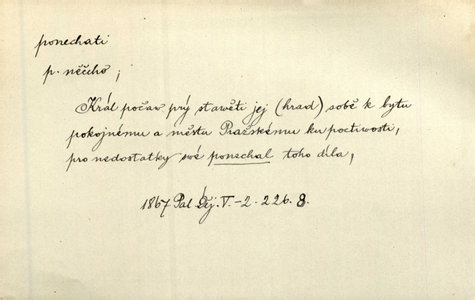 ponechati
p. něčeho ;
Král počav prý stavěti jej (hrad) sobě k bytu
pokojnému a městu Pražskému ku poctivosti,
pro nedostatky své ponechal toho díla,
1867 Pal Děj. V.-2. 226. 8.